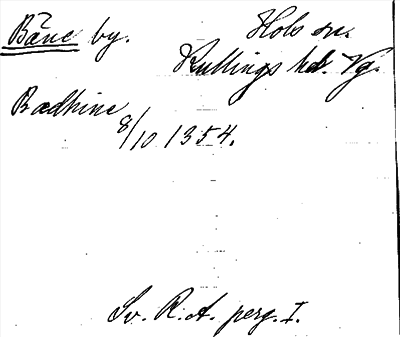 Båne by. Hols sn.
Kullings hd. Vg.
Badhine
8/10 1354.
Sv. R.A. perg. I.